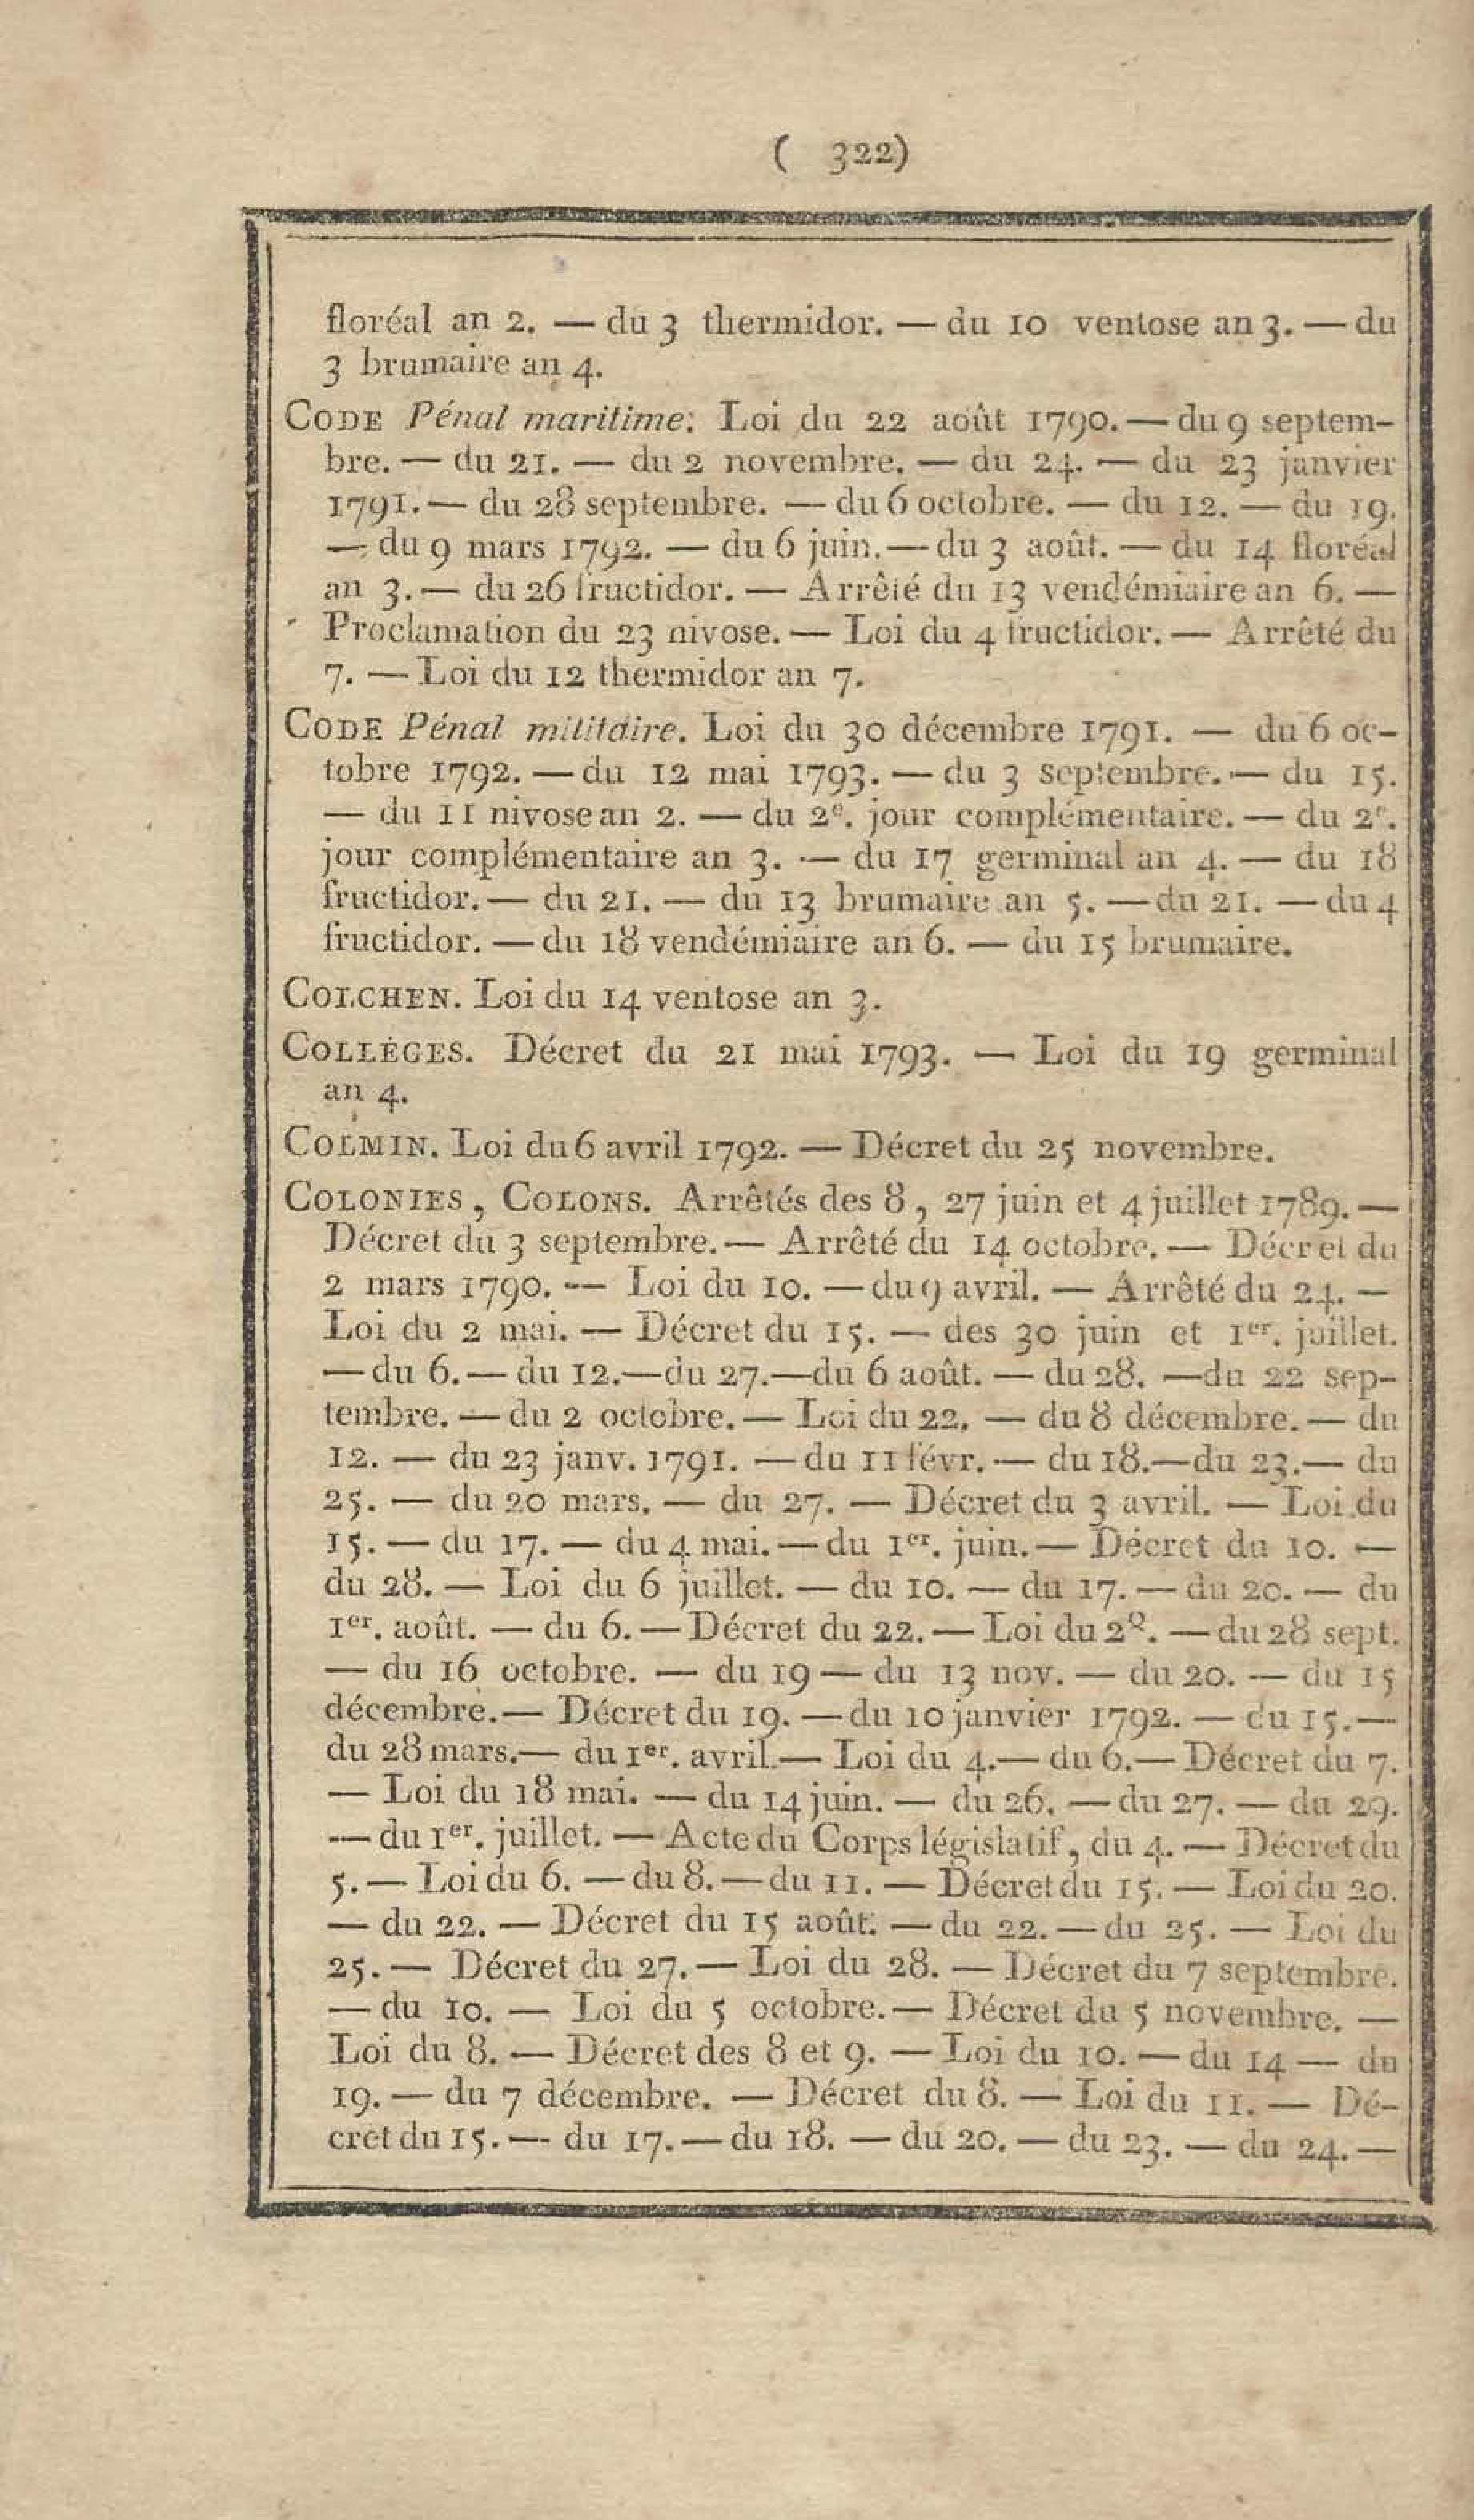 ( 322)
floréal an 2. — du 3 thermidor. — du 10 ventose an 3. — du
3 brumaire an 4.
CODE Pénal maritime. Loi du 22 août 1790. — du 9 septem-
bre. — du 21. — du 2 novembre. — du 24. — du 23 janvier
1791. — du 28 septembre. — du 6 octobre. — du 12. — du 19.
— du 9 mars 1792. — du 6 juin. — du 3 août. — du 14 floréal
an 3. — du 26 fructidor. — Arrêté du 13 vendémiaire an 6. —
Proclamation du 23 nivose. — Loi du 4 fructidor. — Arrêté du
7. — Loi du 12 thermidor an 7.
CODE Pénal militaire. Loi du 30 décembre 1791. — du 6 oc-
tobre 1792. — du 12 mai 1793. — du 3 septembre. — du 15.
— du 11 nivose an 2. — du 2e. jour complémentaire. — du 2e.
jour complémentaire an 3. — du 17 germinal an 4. — du 18
fructidor. — du 21. — du 13 brumaire an 5. — du 21. — du 4
fructidor. — du 18 vendémiaire an 6. — du 15 brumaire.
COLCHEN. Loi du 14 ventose an 3.
COLLÉGES. Décret du 21 mai 1793. — Loi du 19 germinal
an 4.
COLMIN. Loi du 6 avril 1792. — Décret du 25 novembre.
COLONIES, COLONS. Arrêtés des 8, 27 juin et 4 juillet 1789. —
Décret du 3 septembre. — Arrêté du 14 octobre. — Décret du
2 mars 1790. — Loi du 10. — du 9 avril. — Arrêté du 24. —
Loi du 2 mai. — Décret du 15. — des 30 juin et 1er. juillet.
— du 6. — du 12. — du 27. — du 6 août. — du 28. — du 22 sep-
tembre. — du 2 octobre. — Loi du 22. — du 8 décembre. — du
12. — du 23 janv. 1791. — du 11 févr. — du 18. — du 23. — du
25. — du 20 mars. — du 27. — Décret du 3 avril. — Loi du
15. — du 17. — du 4 mai. — du 1er. juin. — Décret du 10. —
du 28. — Loi du 6 juillet. — du 10. — du 17. — du 20. — du
1er. août. — du 6. — Décret du 22. — Loi du 28. — du 28 sept.
— du 16 octobre. — du 19 — du 13 nov. — du 20. — du 15
décembre. — Décret du 19. — du 10 janvier 1792. — du 15. —
du 28 mars. — du 1er. avril. — Loi du 4. — du 6. — Décret du 7.
— Loi du 18 mai. — du 14 juin. — du 26. — du 27. — du 29.
— du 1er. juillet. — Acte du Corps législatif, du 4. — Décret du
5. — Loi du 6. — du 8. — du 11. — Décret du 15. — Loi du 20.
— du 22. — Décret du 15 août. — du 22. — du 25. — Loi du
25. — Décret du 27. — Loi du 28. — Décret du 7 septembre.
— du 10. — Loi du 5 octobre. — Décret du 5 novembre. —
Loi du 8. — Décret des 8 et 9. — Loi du 10. — du 14 — du
19. — du 7 décembre. — Décret du 8. — Loi du 11. — Dé-
cret du 15. — du 17. — du 18. — du 20. — du 23. — du 24. —